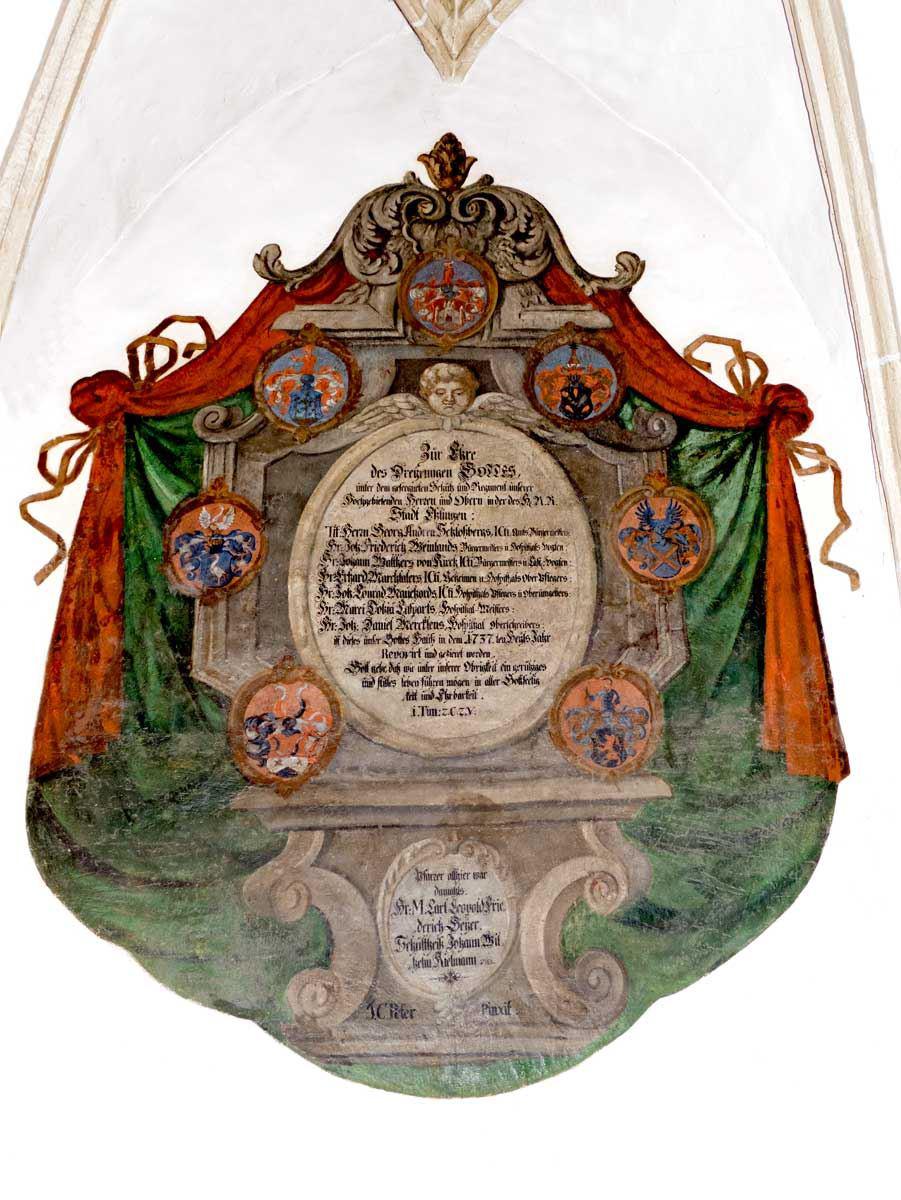 Zur Ehre
des Dreieinigen GOTTES,
unter dem gesegneten Schutz und Regiment unserer
Hochgebietenden Herren und Obern in der des H. R. R.
Stadt Esslingen:
Tit Herrn Georg Andrea ICti Amts Burgermeisters
Hr. Joh: Friderich Weinlands Burgermeisters u Hospithals Vogten
Hr. Johann Walthers von Kurrk ICti Burgermeisters u Vogten
Hr. Erhard ICti Geheimen u Hospithals Ober Pflegers:
Hr. Joh: Conrad Mauchards ICti Hospithals Pflegers u Oberumgelters:
Hr. Marci Tobia Hospithal Meisters:
Hr. Joh: Daniel Mercklens, Hospithal Oberschreibers:
ist dieses unser Gottes Hauß in dem 1737. ten Heyls Jahr
Renovirt und gezieret worden.
Gott gebe daß wir unter unserer Obrigkeit ein geruhiges
und stilles leben führen mögen in aller Gottseelig
keit und Ehrbarkeit.
1. Tim: 2. C. 2. V.
Pfarrer allhier war
damahls:
Hr: M. Carl Leopold Frie
derich
Schultheiß Johann Wil
helm Kielmann
J. C. Peter Pinxit.